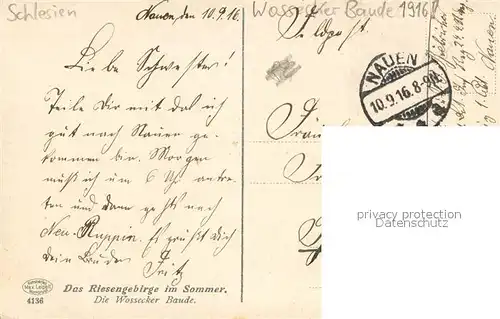 Schlesien
Wossecker Baude 1916
Nauen den 10.9.16.
Feldpost.
Liebe Schwester!
Teile Dir mit daß ich
gut nach Nauen ge-
kommen bin. Morgen
muß ich um 6 Uhr antre-
ten und dann gehts nach
Neu-Ruppin. Es grüßt Dich
dein Bruder
Fritz
NAUEN
10.9.16.8-9N.
privacy protection
Datenschutz
MAX LEIPELT
4136
Das Riesengebirge im Sommer.
Die Wossecker Baude.